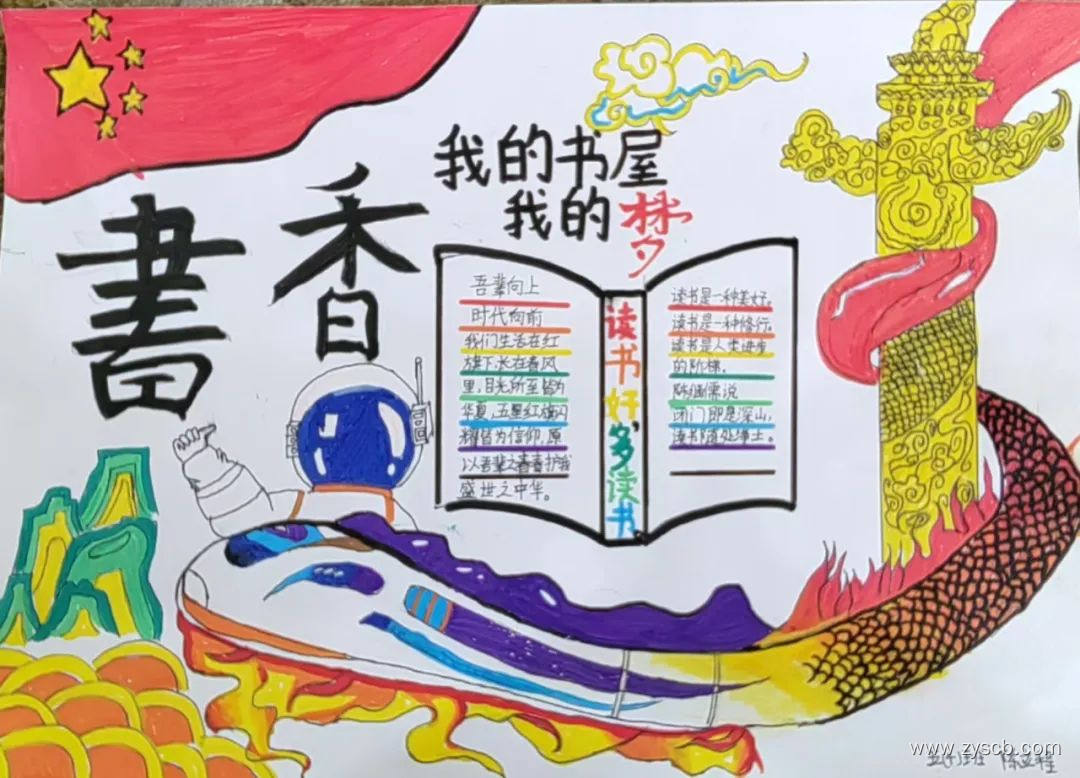 書香
我的书屋
我的梦
吾辈向上
时代向前
我们生活在红
旗下,长在春风
里,目光所至皆为
华夏,五星红旗闪
耀皆为信仰,愿
以吾辈之青春护我
盛世之中华。
读书好,多读书
读书是一种美好。
读书是一种修行。
读书是人类进步
的阶梯。
陈继儒说
闭门即是深山,
读书随处净土。
www.zyscb.com